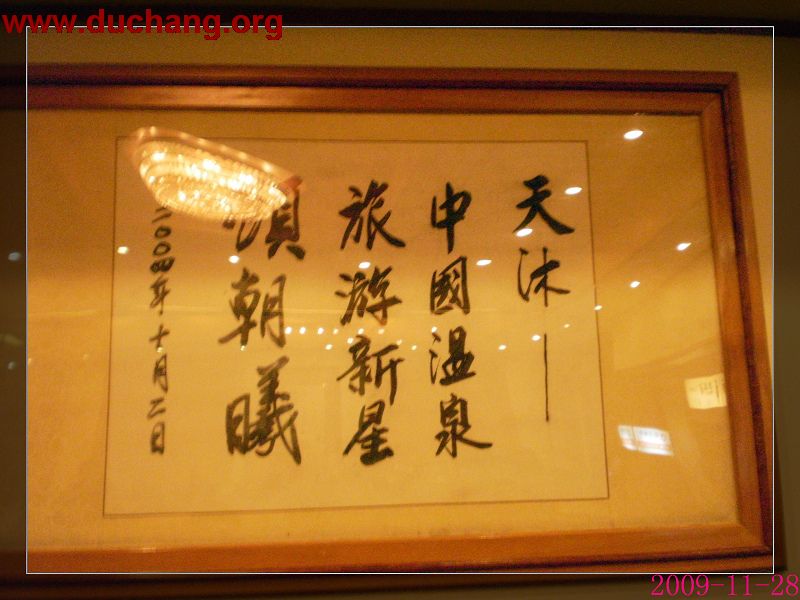 www.duchang.org
天沐—
中國温泉
旅游新星
朝曦
二〇〇四年十月二日
2009-11-28